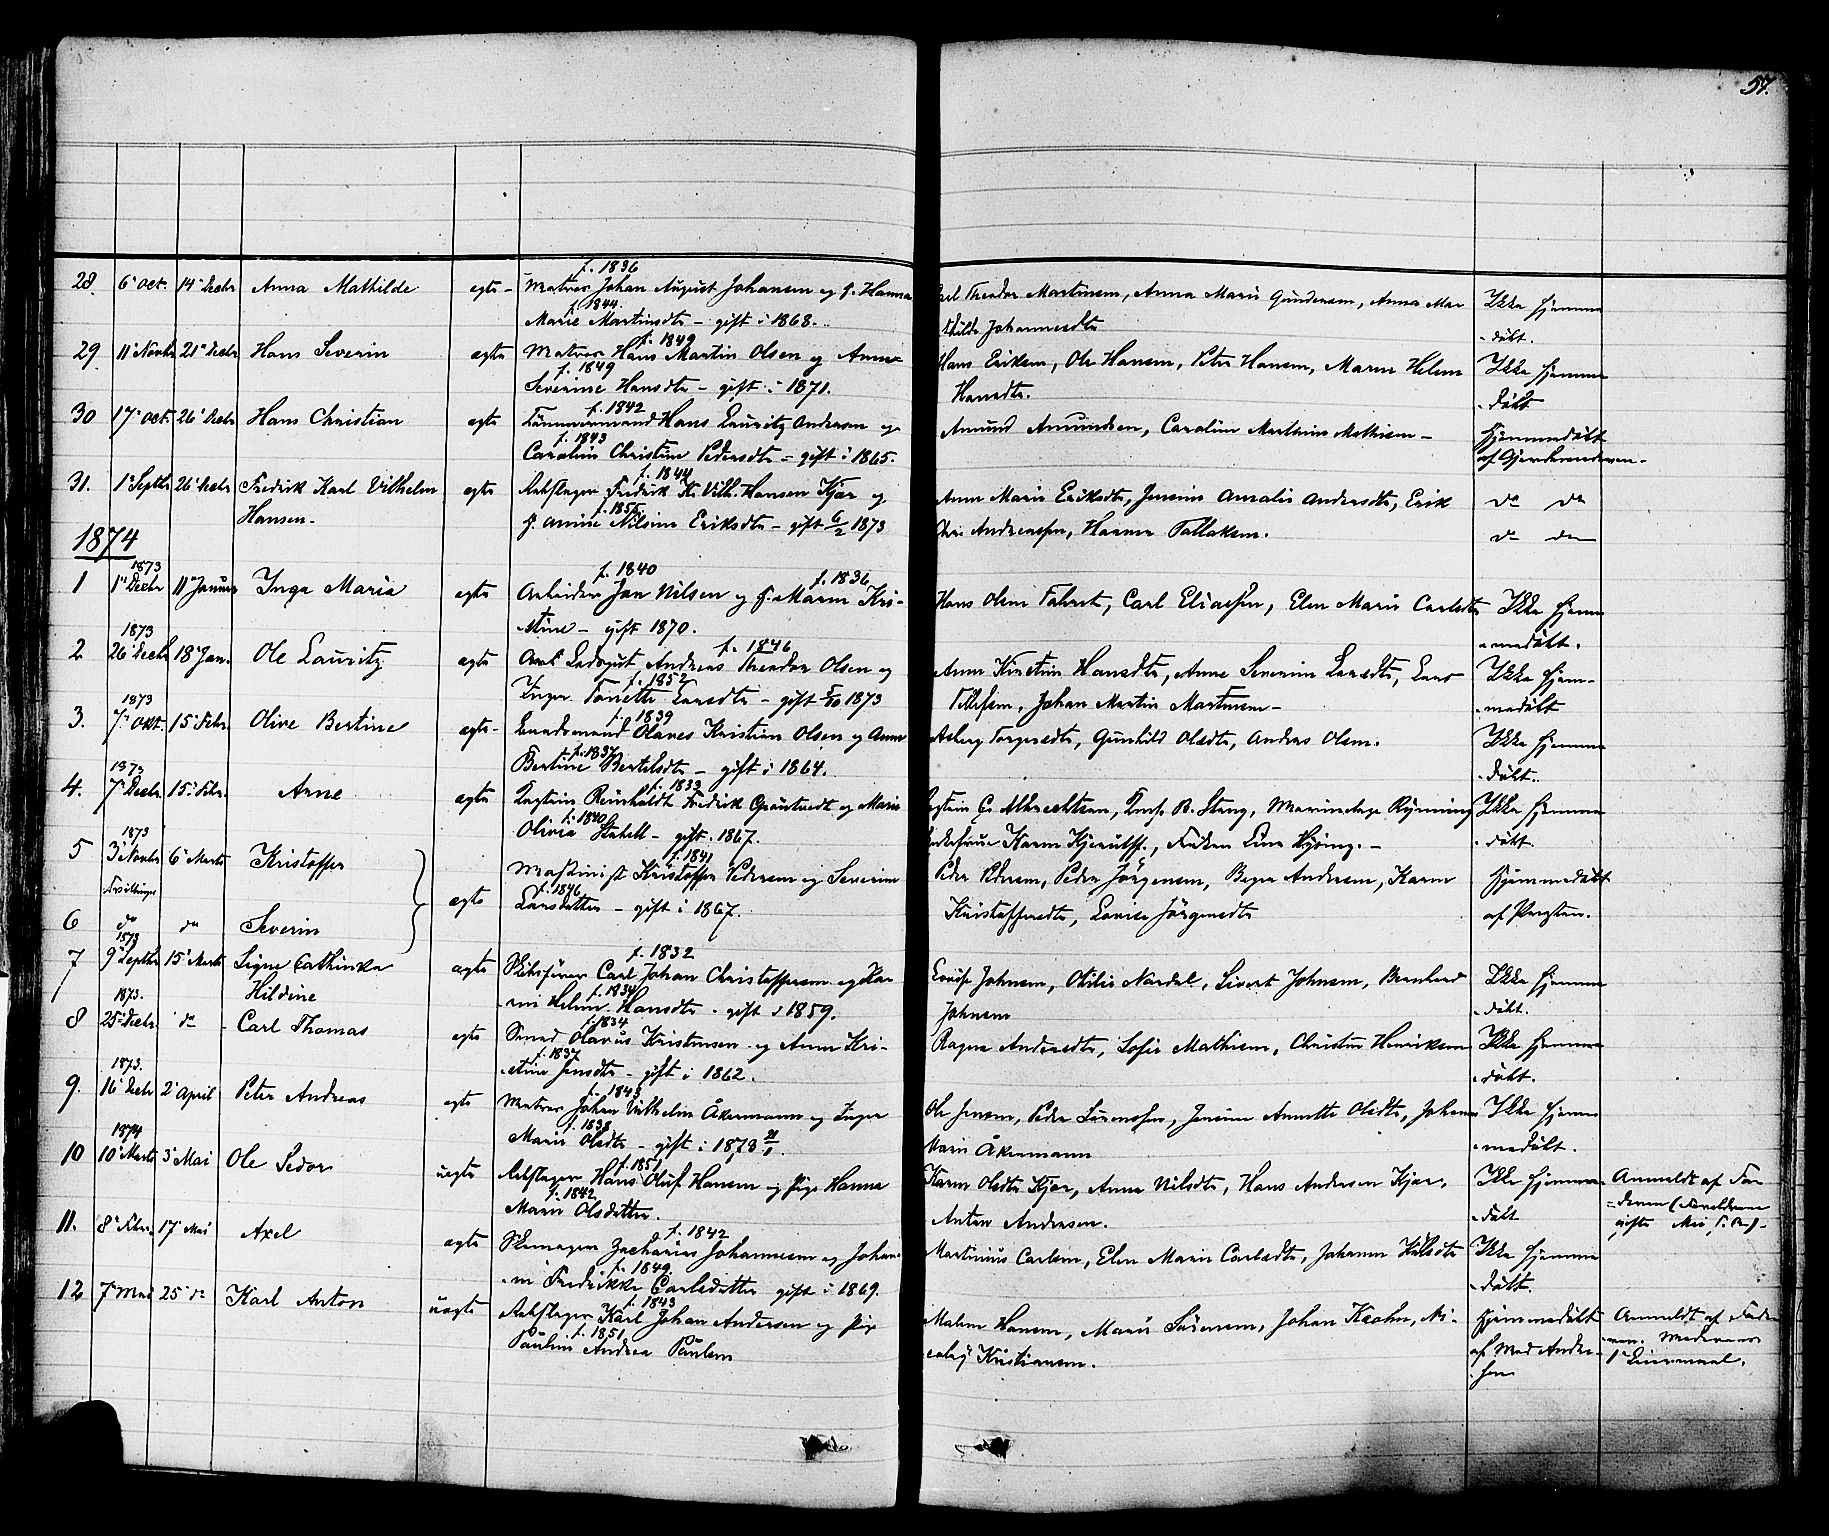 57.
28. 6' Oct. 14' Decbr Anna Mathilde ægte - Matros Johan August Johansen og H. Hanna f. 1836
Marie Martinsdtr - gift i 1868. f. 1844.
Theodor Martinsen, Anna Marie Gundersen, Anna Ma-
thilde Johannesdtr
Ikke hjemme
døbt.
29. 11' Novbr 21' Decbr Hans Severin ægte Matros Hans Martin Olsen og Anne f. 1849
Severine Hansdtr - gift i 1871. f. 1849
Hans Eriksen, Ole Hansen, Peter Hansen, Maren Helene
Hansdtr.
Ikke hjemme
døbt
30 17' Oct. 26' Decbr Hans Christian ægte Tømmermand Hans Lauritz Andersen og f. 1842
Caroline Christine Pedersdtr - gift i 1865. f. 1843
Amund Amundsen, Caroline Mathisen -
Hjemmedøbt
af Gjordemoderen -
31. 1' Septbr 26' Decbr Fredrik Karl Vilhelm ægte Rebslager Fredrik K. Vilh. Hansen Kjær og f. 1844
Hansen - Nilsine Eriksdtr - gift 6/2 1873
Anne Marie Eriksdtr, Jensine Amalie Andersdtr, Erik
Andreassen, Hanne Tallaksen.
do do
do do
1874
1 1873 1' Decbr 11' Januar Inga Maria ægte Arbeider Jan Nilsen og H. Maren Kri- f. 1840 f. 1836
stine - gift 1870.
Hans Olsen, Carl Eliassen, Elen Marie Carlsdtr
Ikke hjem-
medøbt.
2 1873 26' Decbr 18' Jan. Ole Lauritz ægte Andreas Theodor Olsen og f. 1846
Inger Tonette Larsdtr - gift 1873 f. 1852
Anne Kirstine Hansdtr, Anne Severine Larsdtr, Lars
Tellefsen, Johan Martin Martinsen -
Ikke hjem-
medøbt
3. 1873 7' Okt. 15' Febr. Olive Bertine ægte - Olaves Kristian Olsen og Anne f. 1839
Bertine Bertelsdtr - gift i 1864. f. 1837
Torgersdtr, Gunhild Olsdtr, Andreas Olsen.
Ikke hjemme
døbt.
4. 1873 7' Decbr. 15' Febr. Arne ægte Kaptein Reinholdt Fredrik og Marie f. 1833
Olivia Stabell - gift i 1867. f. 1840
Albrechtsen, B. Stang,
Karen Kjerulff, Frøken Lina Hysing. -
Ikke hjemme
døbt
5 1873 3' Novbr 6' Marts Kristoffer ægte Maskinist Kristoffer Pedersen og Severine f. 1841
Tvillinger Larsdatter - gift i 1867. f. 1846
6 do do Severin
Peder Pedersen, Peder Jörgensen, Andersen, Karen
Kristoffersdtr, Lovise Jörgensdtr
Hjemmedøbt
af Presten.
7 1873 9' Septbr 15' Marts Signe Cathinka ægte Skibsfører Carl Johan Christoffersen og Ka- f. 1832
Hildine Helene Hansdtr - gift i 1859. f. 1834
Lovise Johnsen, Otilie Nardal, Sivert Johnsen, Bernhard
Johnsen
Ikke hjemme
døbt.
8 1873. 25' Decbr. do - Carl Thomas ægte Smed Olavus Kristensen og Anne Kri- f. 1834
stine Jensdtr - gift i 1862. f. 1837
Ragna Andersdtr, Sofie Mathisen, Henriksen
Ikke hjemme
døbt.
9. 1873. 16' Decbr 2' April Peter Andreas ægte Matros Johan Vilhelm Åkermann og Inger f. 1843
Marie Olsdtr - gift i 1873 f. 1838
Ole Jensen, Peder Sørensen, Jensine Annette Olsdtr,
Marie Åkermann
Ikke hjem-
medøbt.
10 1874 10' Marts 3' Mai Ole Sedor uægte Rebslager Hans Oluf Hansen og Pige Hanna f. 1851
Marie Olsdatter. f. 1842
Karen Olsdtr Kjær, Anna Nilsdtr, Hans Andersen Kjær,
Anton Andersen.
Ikke hjemme-
døbt
Anmeldt af Fa-
deren (Forældrene
gifte Mai)
11. 8' Febr. 17' Mai Axel ægte Skomager Zacharias Johannesen og Johan- f. 1842
ne Fredrikke Carlsdatter gift i 1869. f. 1849
Martinius Carlsen, Elen Marie Carlsdtr, Johanne
Ikke hjemme
døbt.
12 7' Mai 25' do Karl Anton uægte Rebslager Karl Johan Andersen og Pige f. 1843
Pauline Andrea Paulsen f. 1851
Malene Hansen, Marie Sørensen, Johan Krohn, Ni-
colay Kristiansen.
Hjemmedøbt
af Mad. Ander-
sen
Anmeldt af Fade-
ren. Moderens
1' Leiermaal.